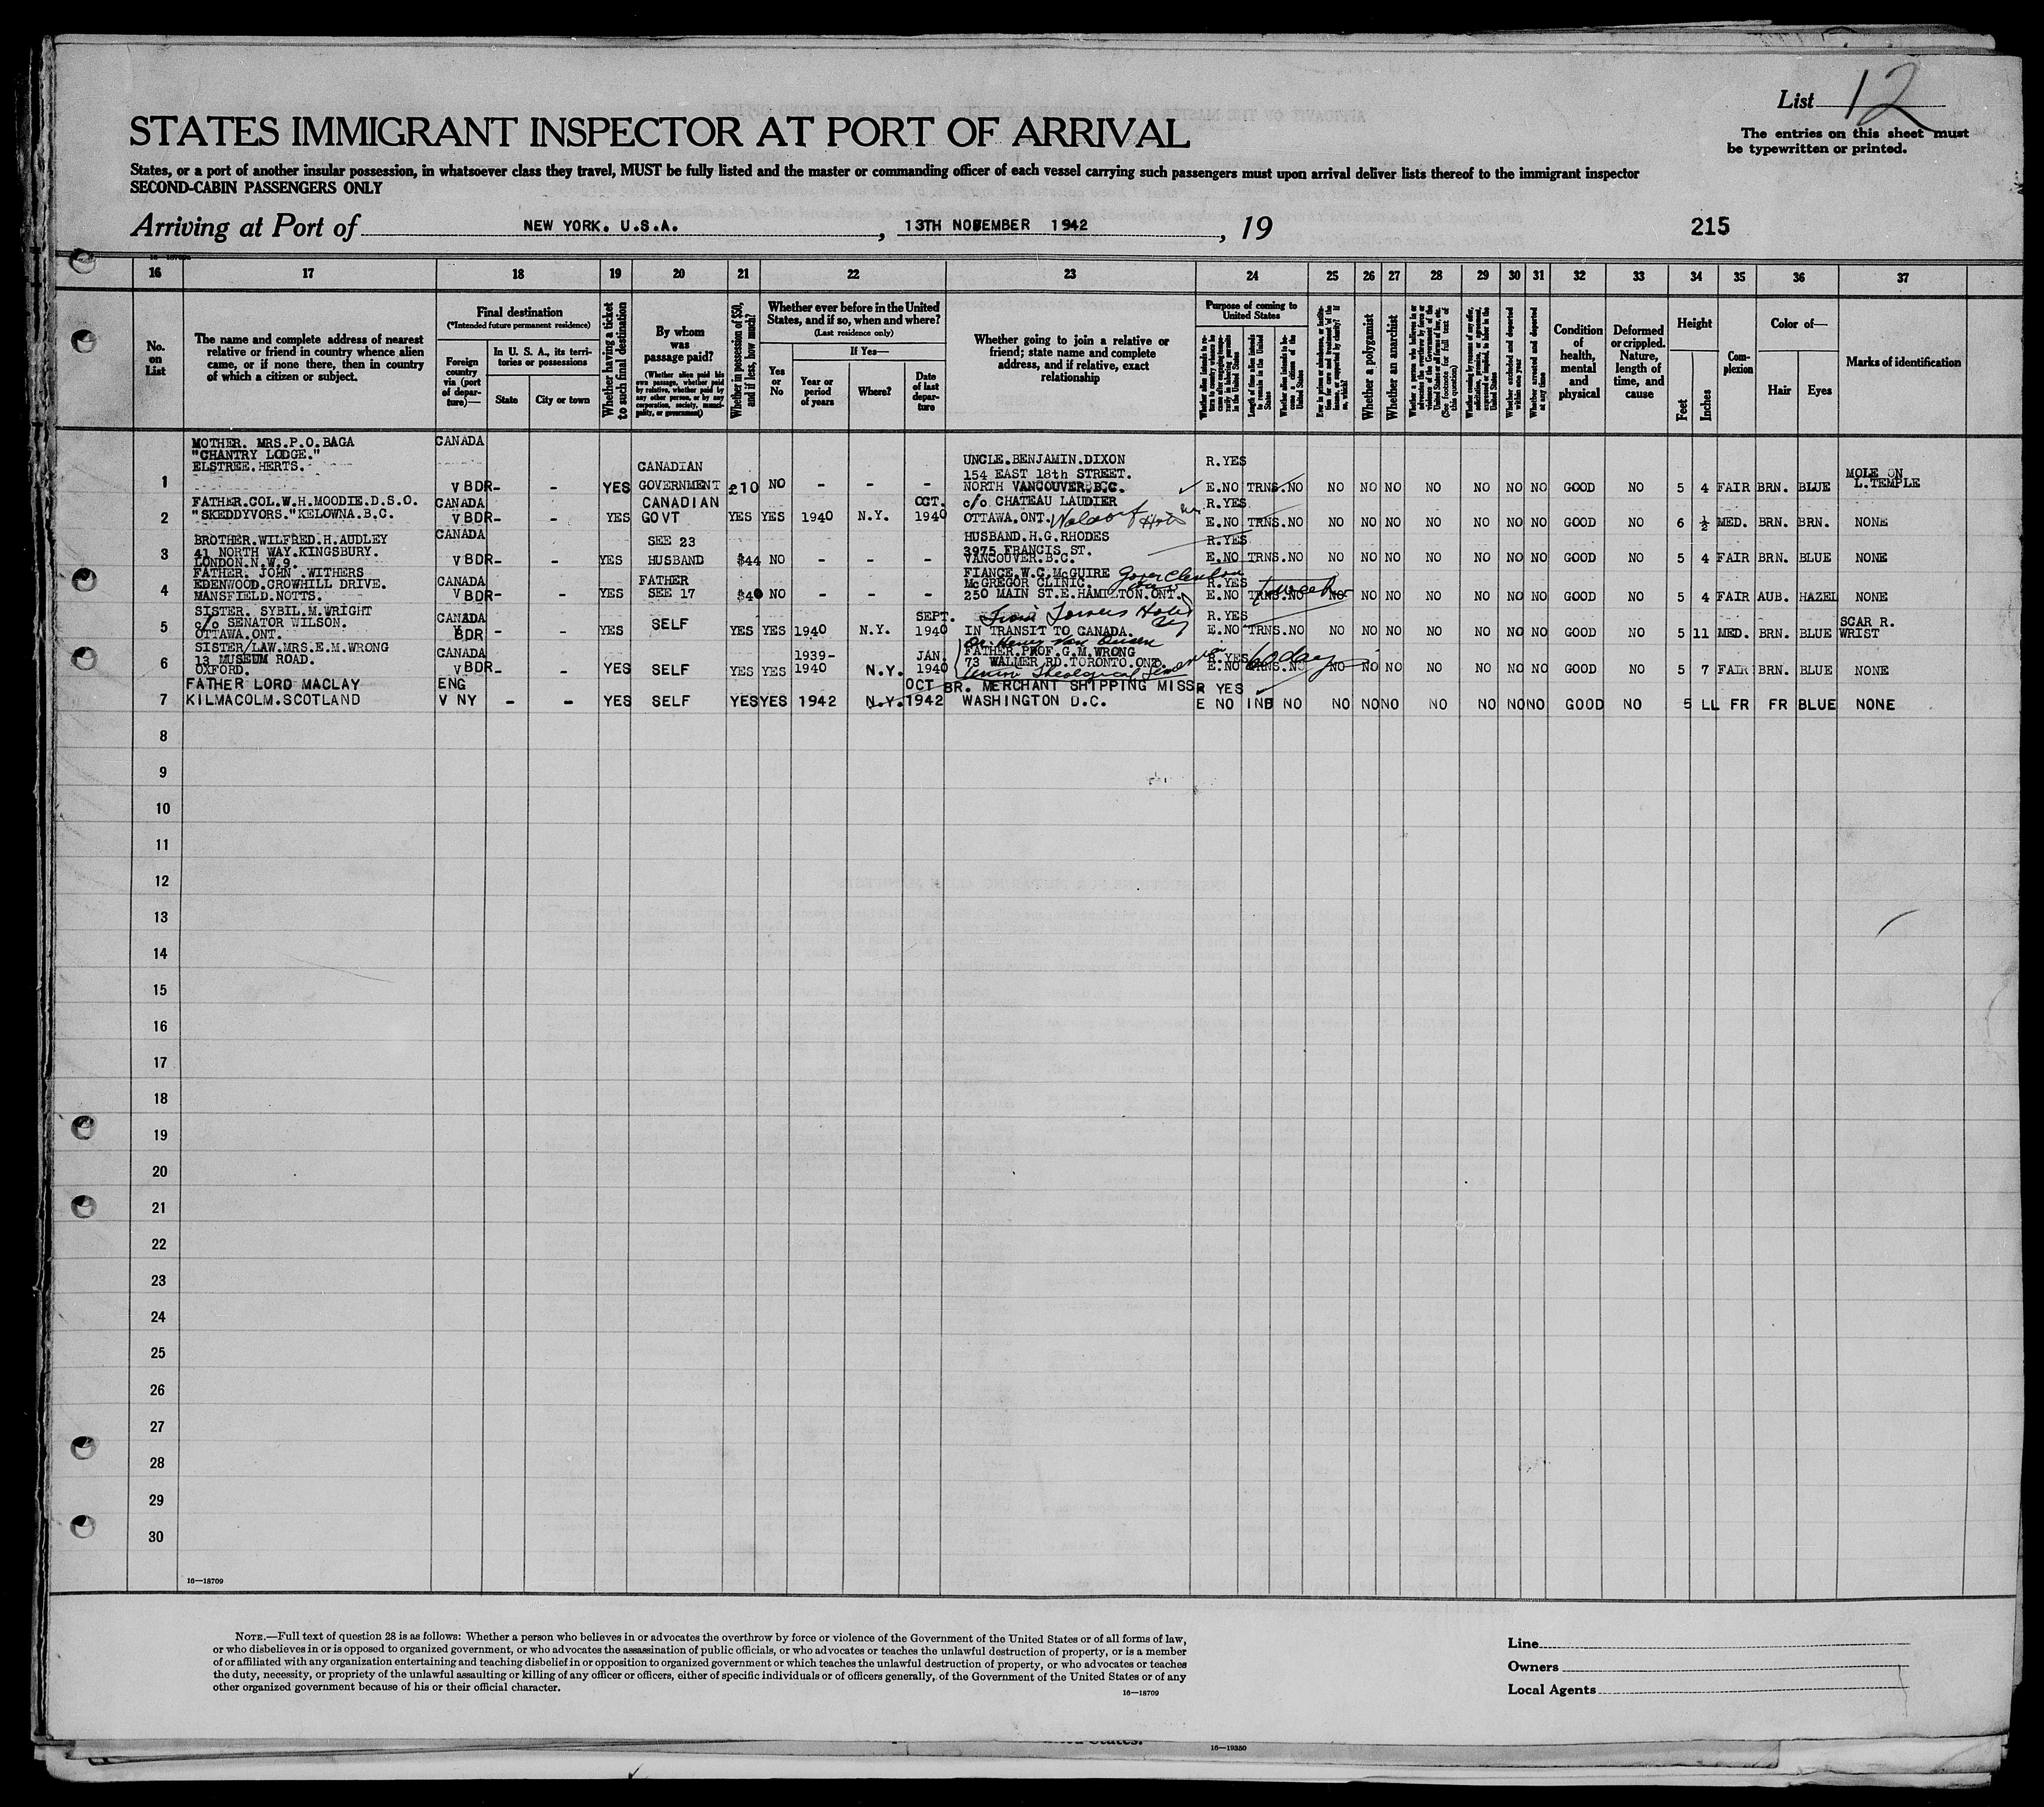 List 12
The entries on this sheet must
be typewritten or printed.
STATES IMMIGRANT INSPECTOR AT PORT OF ARRIVAL
States, or a port of another insular possession, in whatsoever class they travel, MUST be fully listed and the master or commanding officer of each vessel carrying such passengers must upon arrival deliver lists thereof to the immigrant inspector
SECOND-CABIN PASSENGERS ONLY
Arriving at Port of NEW YORK. U.S.A. , 13TH NOVEMBER 1942 , 19 215
16 17 18 19 20 21 22 23 24 25 26 27 28 29 30 31 32 33 34 35 36 37
No. on List
The name and complete address of nearest relative or friend in country whence alien came, or if none there, then in country of which a citizen or subject.
Final destination
(*Intended future permanent residence)
Foreign country via (port of departure)—
In U. S. A., its territories or possessions
State
City or town
Whether having a ticket to such final destination
By whom was passage paid?
(Whether alien paid his own passage, whether paid by relative, whether paid by any other person, or by any corporation, society, municipality, or government)
Whether in possession of $50, and if less, how much?
Whether ever before in the United States, and if so, when and where?
(Last residence only)
Yes or No
If Yes—
Year or period of years
Where?
Date of last departure
Whether going to join a relative or friend; state name and complete address, and if relative, exact relationship
Purpose of coming to United States
Length of time alien intends to remain in the United States
Whether alien intends to become a citizen of the United States
Whether a polygamist
Whether an anarchist
Whether excluded and deported within one year
Whether arrested and deported at any time
Condition of health, mental and physical
Deformed or crippled. Nature, length of time, and cause
Height
Feet
Inches
Complexion
Color of—
Hair
Eyes
Marks of identification
MOTHER. MRS.P.O.BAGA CANADA
"CHANTRY LODGE." UNCLE.BENJAMIN.DIXON R.YES
ELSTREE.HERTS. CANADIAN 154 EAST 18th STREET. MOLE ON
1 V BDR- - YES GOVERNMENT £10 NO - - - NORTH VANCOUVER.B.C. E.NO TRNS.NO NO NO NO NO NO NO NO GOOD NO 5 4 FAIR BRN. BLUE L.TEMPLE
FATHER.COL.W.H.MOODIE.D.S.O. CANADA CANADIAN OCT. c/o CHATEAU LAUDIER R.YES
2 "SKEDDYVORS."KELOWNA.B.C. V BDR- - YES GOVT YES YES 1940 N.Y. 1940 OTTAWA.ONT. E.NO TRNS.NO NO NO NO NO NO NO NO GOOD NO 6 ½ MED. BRN. BRN. NONE
BROTHER.WILFRED.H.AUDLEY CANADA SEE 23 HUSBAND.H.G.RHODES R.YES
3 41 NORTH WAY.KINGSBURY. V BDR- - YES HUSBAND $44 NO - - - 3975 FRANCIS ST. E.NO TRNS.NO NO NO NO NO NO NO NO GOOD NO 5 4 FAIR BRN. BLUE NONE
LONDON.N.W.9. VANCOUVER.B.C.
FATHER. JOHN .WITHERS CANADA FATHER FIANCE.W.C.McGUIRE R.YES
4 EDENWOOD.CROWHILL DRIVE. V BDR- - YES SEE 17 $40 NO - - - McGREGOR CLINIC. E.NO TRNS.NO NO NO NO NO NO NO NO GOOD NO 5 4 FAIR AUB. HAZEL NONE
MANSFIELD.NOTTS. 250 MAIN ST.E.HAMILTON.ONT.
SISTER. SYBIL.M.WRIGHT CANADA SEPT. R.YES SCAR R.
5 c/o SENATOR WILSON. V BDR - YES SELF YES YES 1940 N.Y. 1940 IN TRANSIT TO CANADA. E.NO TRNS.NO NO NO NO NO NO NO NO GOOD NO 5 11 MED. BRN. BLUE WRIST
OTTAWA.ONT.
SISTER/LAW.MRS.E.M.WRONG CANADA 1939- JAN FATHER.PROF.G.M.WRONG R.YES
6 13 MUSEUM ROAD. V BDR- - YES SELF YES YES 1940 N.Y. 1940 73 WALMER RD.TORONTO.ONT. E.NO TRNS.NO 60 days NO NO NO NO NO NO NO GOOD NO 5 7 FAIR BRN. BLUE NONE
OXFORD. Union Theological Seminary
FATHER LORD MACLAY ENG OCT BR. MERCHANT SHIPPING MISS R YES
7 KILMACOLM.SCOTLAND V NY - - YES SELF YES YES 1942 N.Y. 1942 WASHINGTON D.C. E NO IND NO NO NO NO NO NO NO NO GOOD NO 5 LL FR FR BLUE NONE
8
9
10
11
12
13
14
15
16
17
18
19
20
21
22
23
24
25
26
27
28
29
30
16—18709
NOTE.—Full text of question 28 is as follows: Whether a person who believes in or advocates the overthrow by force or violence of the Government of the United States or of all forms of law,
or who disbelieves in or is opposed to organized government, or who advocates the assassination of public officials, or who advocates or teaches the unlawful destruction of property, or is a member
of or affiliated with any organization entertaining and teaching disbelief in or opposition to organized government or which teaches the unlawful destruction of property, or who advocates or teaches
the duty, necessity, or propriety of the unlawful assaulting or killing of any officer or officers, either of specific individuals or of officers generally, of the Government of the United States or of any
other organized government because of his or their official character.
16—18709
Line
Owners
Local Agents
16—19350